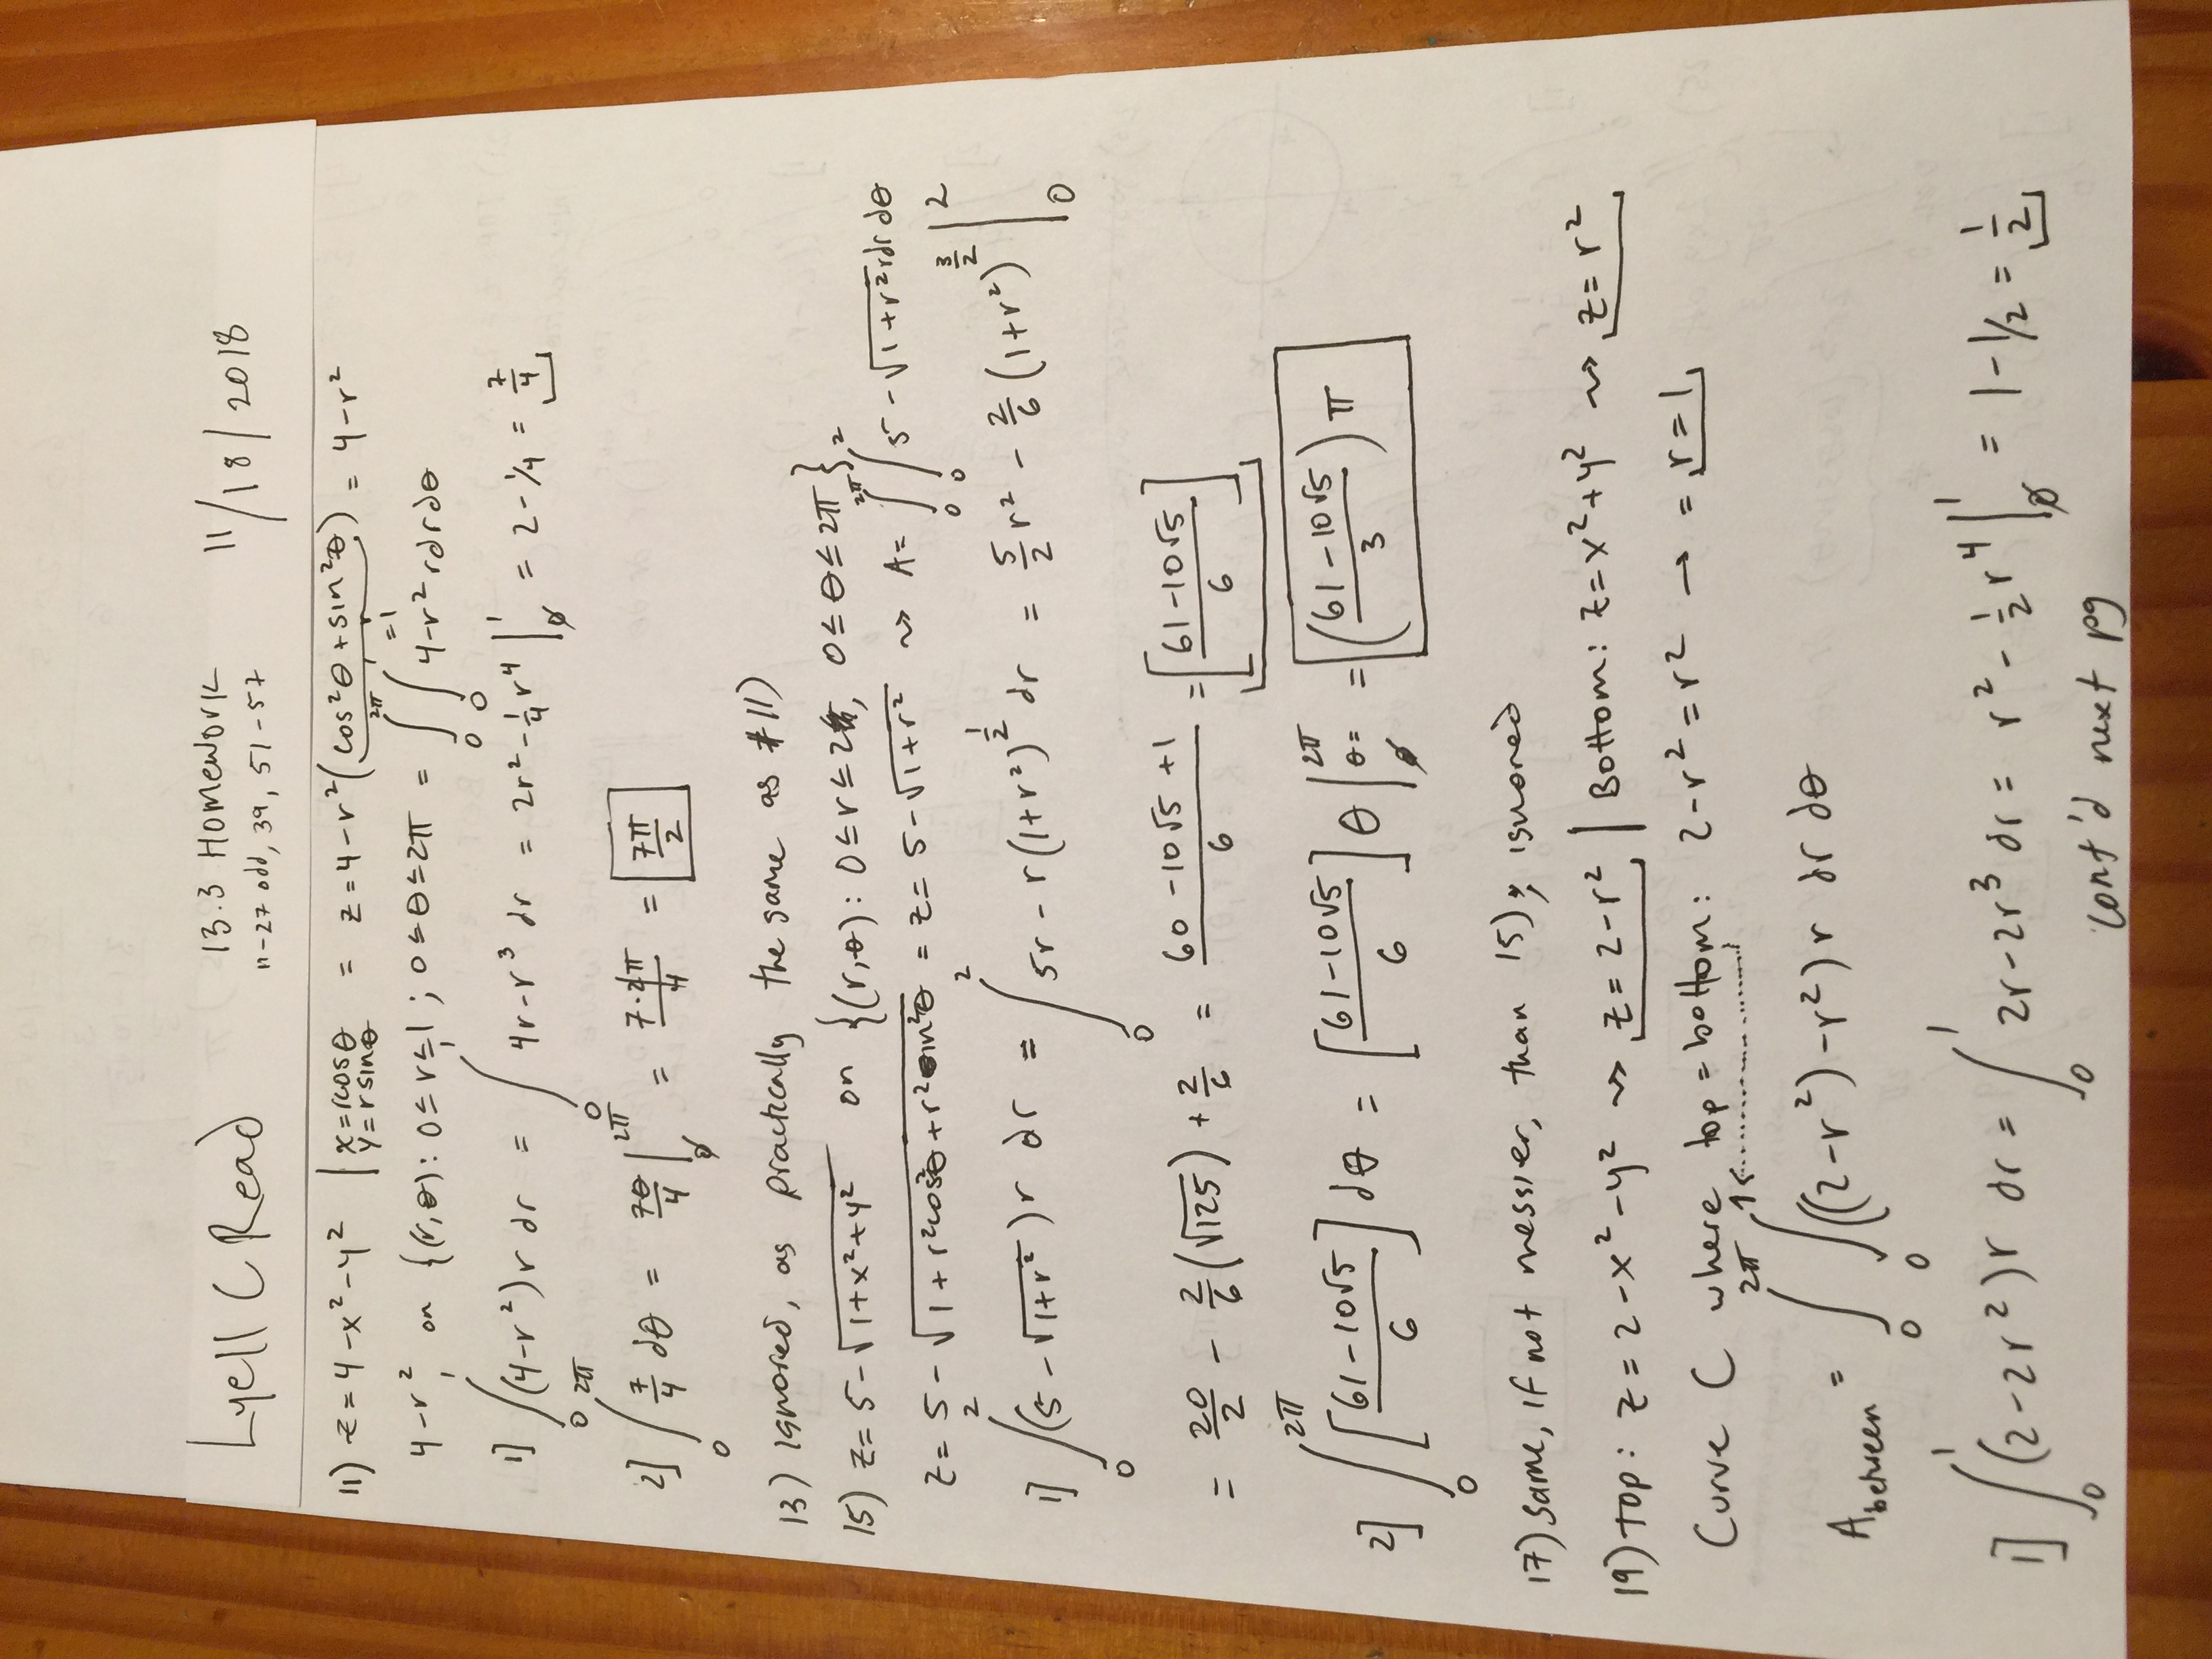 Lyell C Read
13.3 Homework
11-27 odd, 39, 51-57
11/18/2018
11) z = 4-x²-y² | x=rcosθ y=rsinθ = z = 4-r²(cos²θ+sin²θ) = 4-r²
=1
4-r², on {(r,θ): 0≤r≤1; 0≤θ≤2π = ∫₀^2π ∫₀^1 4-r² rdrdθ
1] ∫₀^1 (4-r²)r dr = ∫₀^1 4r-r³ dr = 2r² - 1/4 r⁴ |₀^1 = 2-1/4 = 7/4
2] ∫₀^2π 7/4 dθ = 7θ/4 |₀^2π = 7·2π/4 = 7π/2
13) Ignored, as practically the same as #11)
15) z = 5-√(1+x²+y²) on {(r,θ): 0≤r≤2, 0≤θ≤2π}
z = 5-√(1+r²cos²θ+r²sin²θ) = z = 5-√(1+r²) ⇝ A = ∫₀^2π ∫₀^2 5-√(1+r²) rdr dθ
1] ∫₀^2 (5-√(1+r²))r dr = ∫₀^2 5r-r(1+r²)^(1/2) dr = 5/2 r² - 2/6 (1+r²)^(3/2) |₀^2
= 20/2 - 2/6(√125) + 2/6 = (60-10√5+1)/6 = [(61-10√5)/6]
2] ∫₀^2π [(61-10√5)/6] dθ = [(61-10√5)/6] θ |_θ=0^2π = ((61-10√5)/3) π
17) Same, if not messier, than 15); ignored
19) top: z = 2-x²-y² ⇝ z = 2-r² | Bottom: z = x²+y² ⇝ z = r²
Curve C where top = bottom: 2-r² = r² → = r = 1
A between = ∫₀^2π ∫₀^1 ((2-r²)-r²) r dr dθ
1] ∫₀^1 (2-2r²)r dr = ∫₀^1 2r-2r³ dr = r² - 1/2 r⁴ |₀^1 = 1-1/2 = 1/2
cont'd next pg